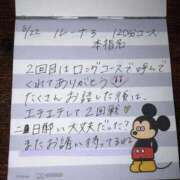 6/22 ルーナ3 120分コース
本指名
2回目はロングコースで呼んで
くれてありがとう
たくさんお話した後は、
エチエチして2回戦♡
二日酔い大丈夫だった?
またお誘い待ってるね♡